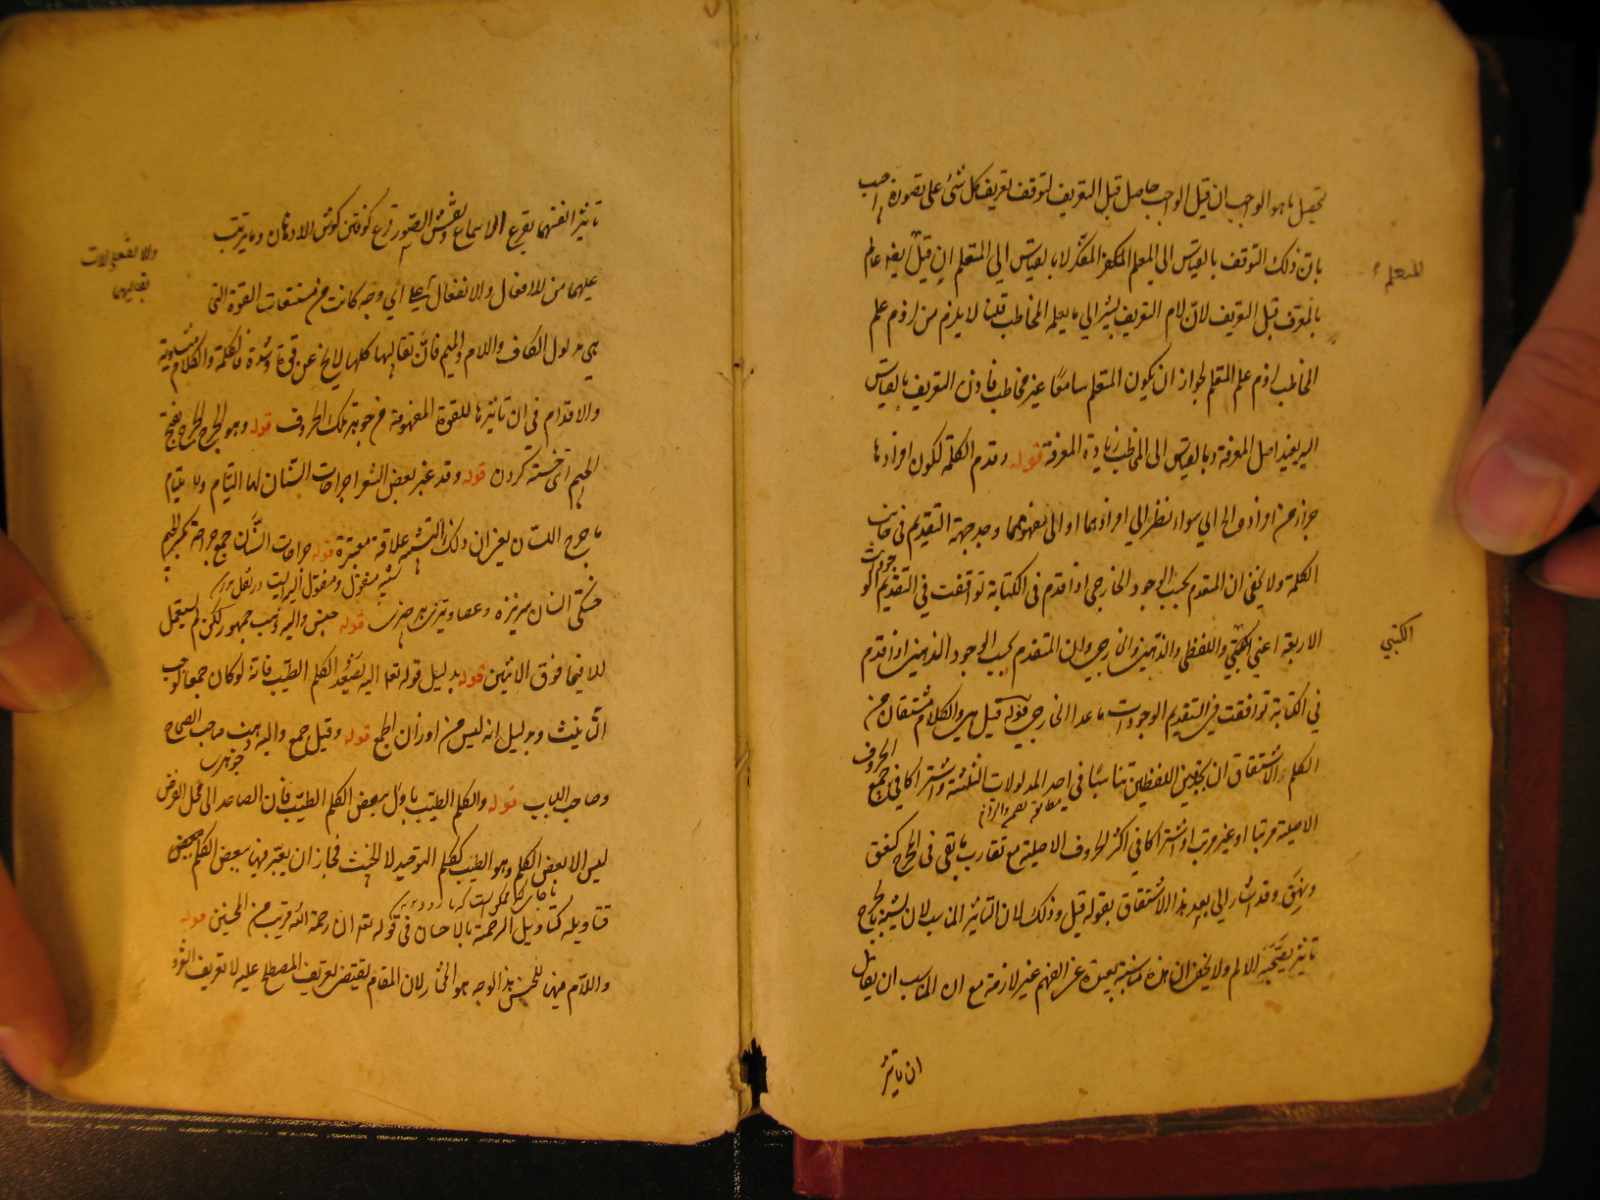 تحصيل ما هو الواجب ان قيل الواجب حاصل قبل التعريف لتوقف تعريف كل شئ على تصوره اجيب
بان ذلك التوقف بالقياس الى المعلم المتكلم لا بالقياس الى المتعلم ان قيل ايضا عالم
للمتعلم
بالمعرف قبل التعريف لان لام التعريف يشير الى ما يعلمه المخاطب قلنا لا يلزم من لزوم علم
المخاطب لزوم علم المتعلم لجواز ان يكون المتعلم سامعا غير مخاطب فاذن التعريف بالقياس
اليه يفيد اصل المعرفة وبالقياس الى المخاطب زيادة المعرفة قوله وقدم الكلمة لكون افرادها
جزء من افراد الكلام سواء نظر الى افرادهما او الى مفهومهما وجد جهة التقديم في جانب
الكلمة ولا يخفى ان المقدم بحسب الوجود الخارجي اذا قدم في الكتابة توافقت في التقديم الوجودات
الاربعة اعني الكتبي واللفظي والذهني والخارجي وان المتقدم بحسب الوجود الذهني اذا قدم
الكتبي
في الكتابة توافقت في التقديم الوجودات ما عدا الخارجي قوله قيل هي والكلام مشتقان من
الكلم الاشتقاق ان تجد بين اللفظين تناسبا في احد المدلولات الثلثة واشتراكا في جميع الحروف
الاصلية مرتبا او غير مرتب او اشتراكا في اكثر الحروف الاصلية مع تقارب ما بقي في المخرج كنعق
ونهق وقد اشار الى بعد هذا الاشتقاق بقوله قيل وذلك لان التاثير المناسب لان يشبه بالجرح
تاثير يصحبه الالم ولا يخفى ان هذه مناسبة بعيدة عن الفهم غير لازمة مع ان المناسب ان يقال
ان تاثير
تاثير انفسهما بقرع الاسماع ونقش الصور قرع كوفتن كوش الاذهان وما يترتب
عليهما من الافعال والانفعال على اي وجه كانت من مستتبعات القوة التي
والانفعالات
هي مدلول الكاف واللام والميم فان تقاليبها كلها لا يخ عن قوة وشدة فالكلمة والكلام
والاقدام في ان تاثيرها للقوة المفهومة من جوهر تلك الحروف قوله وهو الجرح الجرح بفتح
الجيم اي خسته كردن قوله وقد عبر بعض الشعراء جراحات السنان لها التيام ولا يلتام
ما جرح اللسان يعني ان ذلك التشبيه علاقة معتبرة قوله جراحات السنان جمع جراحة بكسر الجيم
قوله جنس واليه ذهب جمهور لكن لم يستعمل
الا فيما فوق الاثنين قوله بدليل قوله تعالى اليه يصعد الكلم الطيب فانه لو كان جمعا لوجب
التانيث وبدليل انه ليس من اوزان الجمع قوله وقيل جمع واليه ذهب صاحب الصحاح
جوهري
وصاحب اللباب قوله والكلم الطيب ياول ببعض الكلم الطيب فان الصاعد الى محل العرض
ليس الا بعض الكلم وهو الطيب ككلم التوحيد لا الخبيث فجاز ان يعتبر فيها بعض الكلم
فتاويله كتاويل الرحمة بالاحسان في قوله تعالى ان رحمة الله قريب من المحسنين قوله
واللام فيها للجنس هذا الوجه هو المختار لان المقام يقتضي تعريف المصطلح عليه لا تعريف الفرد